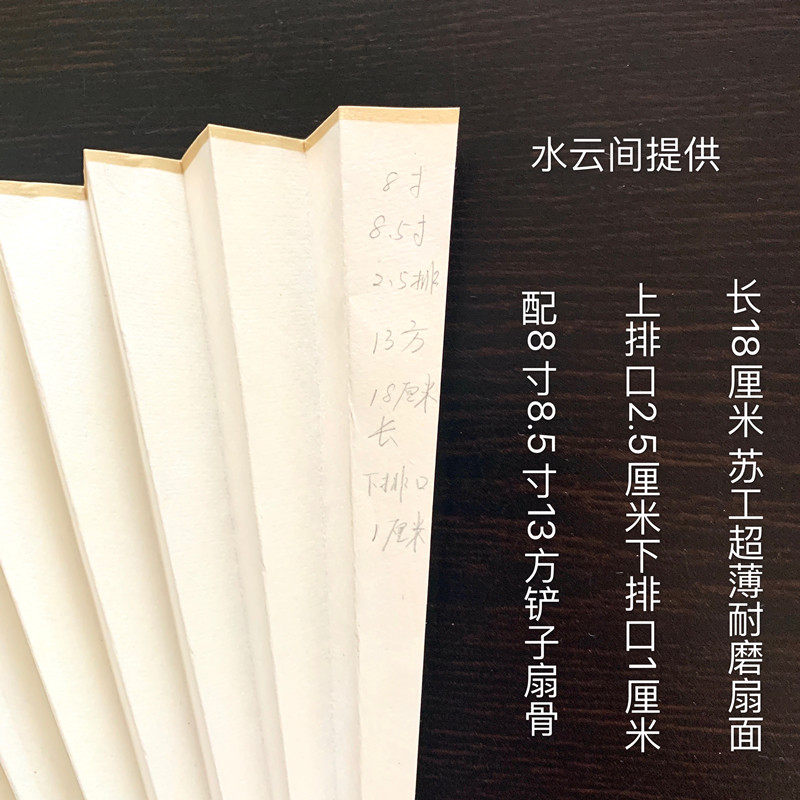 8寸
8.5寸
2.5排
13方
18厘米
长
下排口
1厘米
水云间提供
长18厘米 苏工超薄耐磨扇面
上排口2.5厘米下排口1厘米
配8寸8.5寸13方铲子扇骨